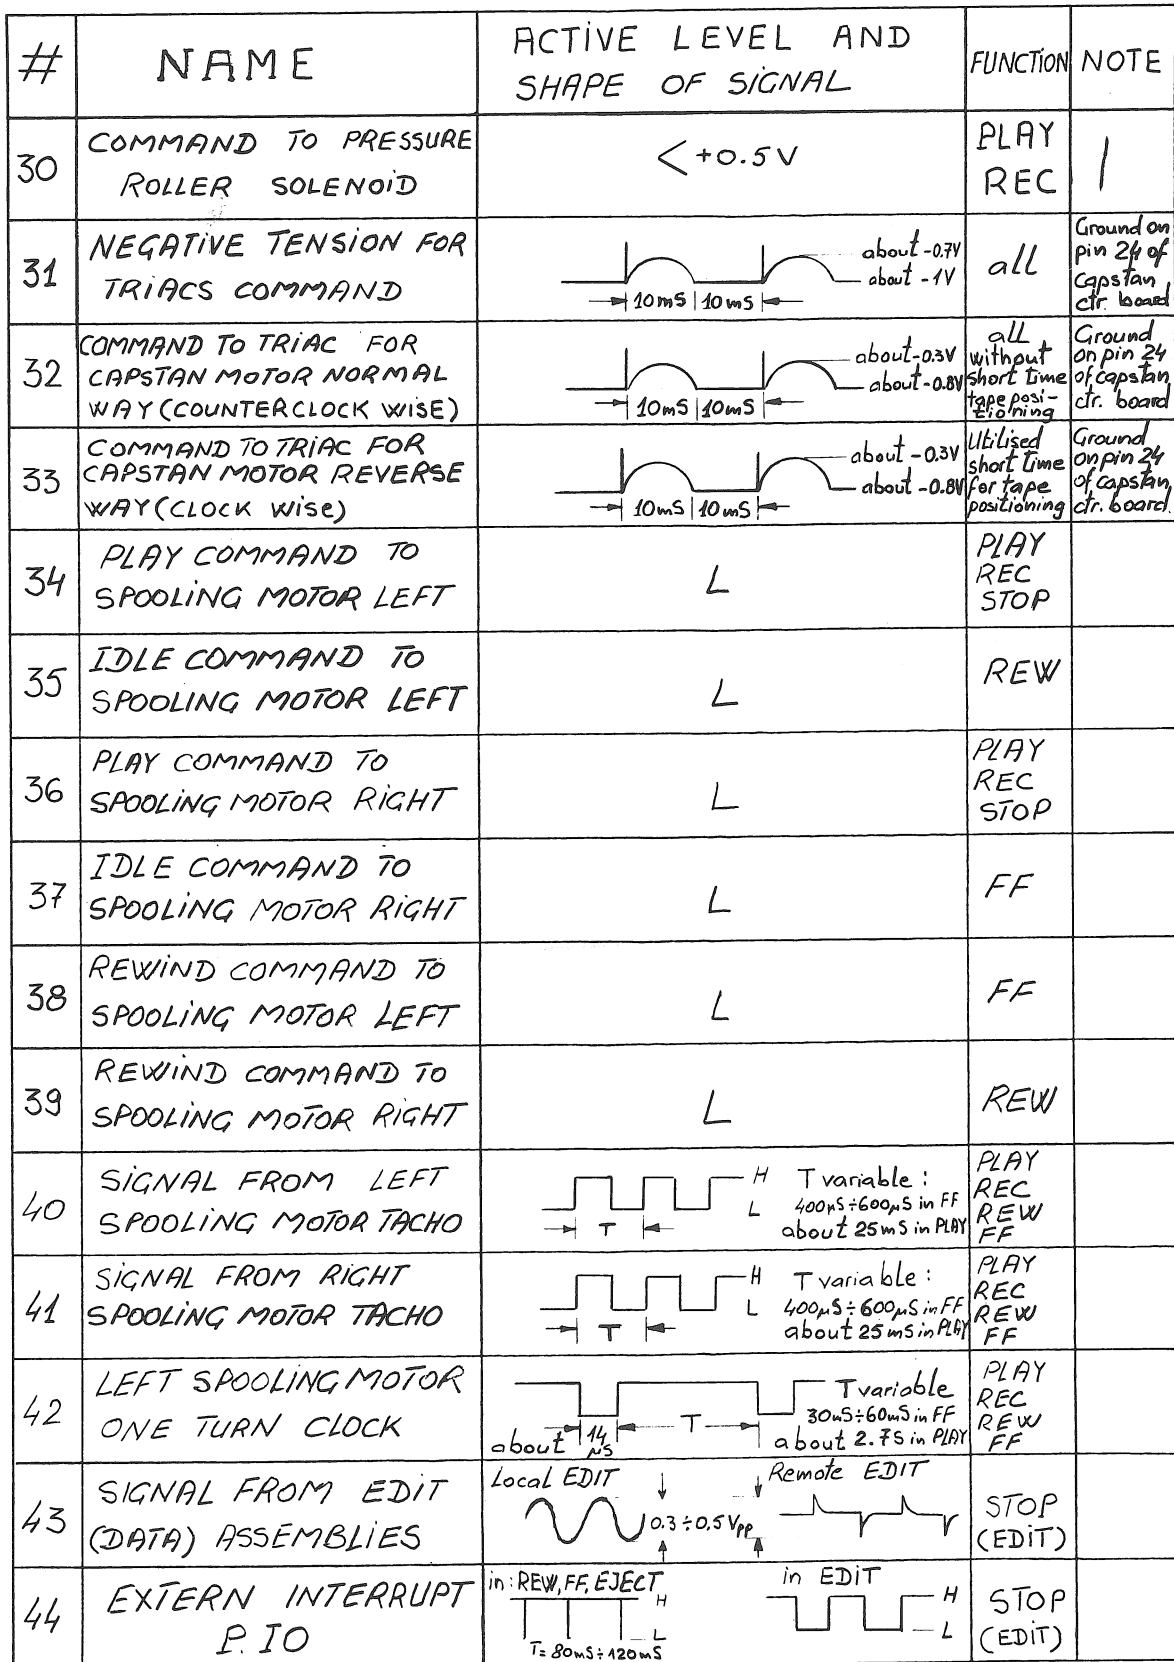 #
NAME
ACTIVE LEVEL AND
SHAPE OF SIGNAL
FUNCTION
NOTE
30
COMMAND TO PRESSURE
ROLLER SOLENOID
<+0.5V
PLAY
REC
1
31
NEGATIVE TENSION FOR
TRIACS COMMAND
about -0.7V
about -1V
10mS 10mS
all
Ground on
pin 24 of
Capstan
ctr. board
32
COMMAND TO TRIAC FOR
CAPSTAN MOTOR NORMAL
WAY (COUNTERCLOCK WISE)
about -0.3V
about -0.8V
10mS 10mS
all
without
short time
tape posi-
tioning
Ground
on pin 24
of capstan
ctr. board
33
COMMAND TO TRIAC FOR
CAPSTAN MOTOR REVERSE
WAY (CLOCK WISE)
about -0.3V
about -0.8V
10mS 10mS
Utilised
short time
for tape
positioning
Ground
on pin 24
of capstan
ctr. board.
34
PLAY COMMAND TO
SPOOLING MOTOR LEFT
L
PLAY
REC
STOP
35
IDLE COMMAND TO
SPOOLING MOTOR LEFT
L
REW
36
PLAY COMMAND TO
SPOOLING MOTOR RIGHT
L
PLAY
REC
STOP
37
IDLE COMMAND TO
SPOOLING MOTOR RIGHT
L
FF
38
REWIND COMMAND TO
SPOOLING MOTOR LEFT
L
FF
39
REWIND COMMAND TO
SPOOLING MOTOR RIGHT
L
REW
40
SIGNAL FROM LEFT
SPOOLING MOTOR TACHO
H
L
T
T variable:
400µS÷600µS in FF
about 25mS in PLAY
PLAY
REC
REW
FF
41
SIGNAL FROM RIGHT
SPOOLING MOTOR TACHO
H
L
T
T variable:
400µS÷600µS in FF
about 25mS in PLAY
PLAY
REC
REW
FF
42
LEFT SPOOLING MOTOR
ONE TURN CLOCK
about 14
µS
T
T variable
30mS÷60mS in FF
about 2.7S in PLAY
PLAY
REC
REW
FF
43
SIGNAL FROM EDIT
(DATA) ASSEMBLIES
Local EDIT
0.3÷0.5Vpp
Remote EDIT
STOP
(EDIT)
44
EXTERN INTERRUPT
P.IO
in: REW, FF, EJECT
H
L
T=80mS÷120mS
in EDIT
H
L
STOP
(EDIT)